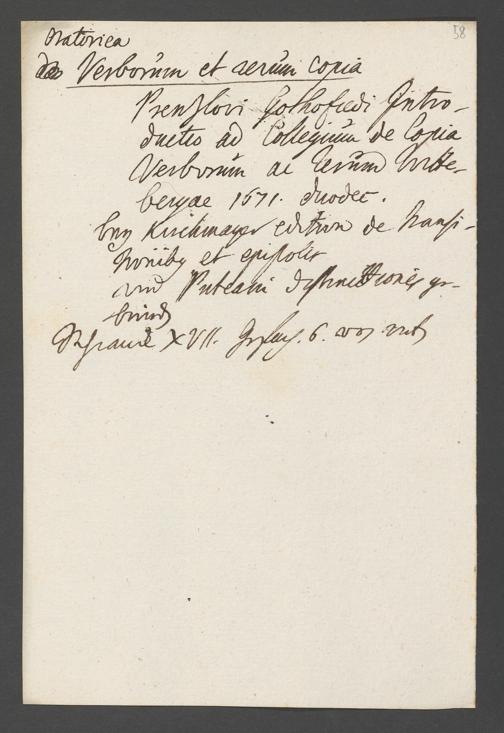 58
Oratorica
de Verborum et rerum copia
Prenzlovi Gothofredi Intro-
ductio ad Collegium de Copia
Verborum ac rerum Witte-
bergae 1671. duodec.
bey Kirchmayer edition de Transi-
tionibus et epistolis
und Puteani
Schranck XVII. 6.